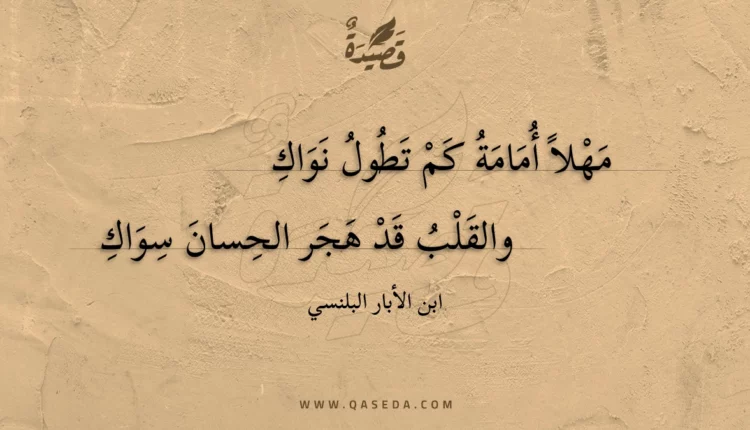 قَصِيْدَةٌ
مَهْلاً أُمَامَةُ كَمْ تَطُولُ نَوَاكِ
والقَلْبُ قَدْ هَجَر الحِسانَ سِوَاكِ
ابن الأبار البلنسي
WWW.QASEDA.COM